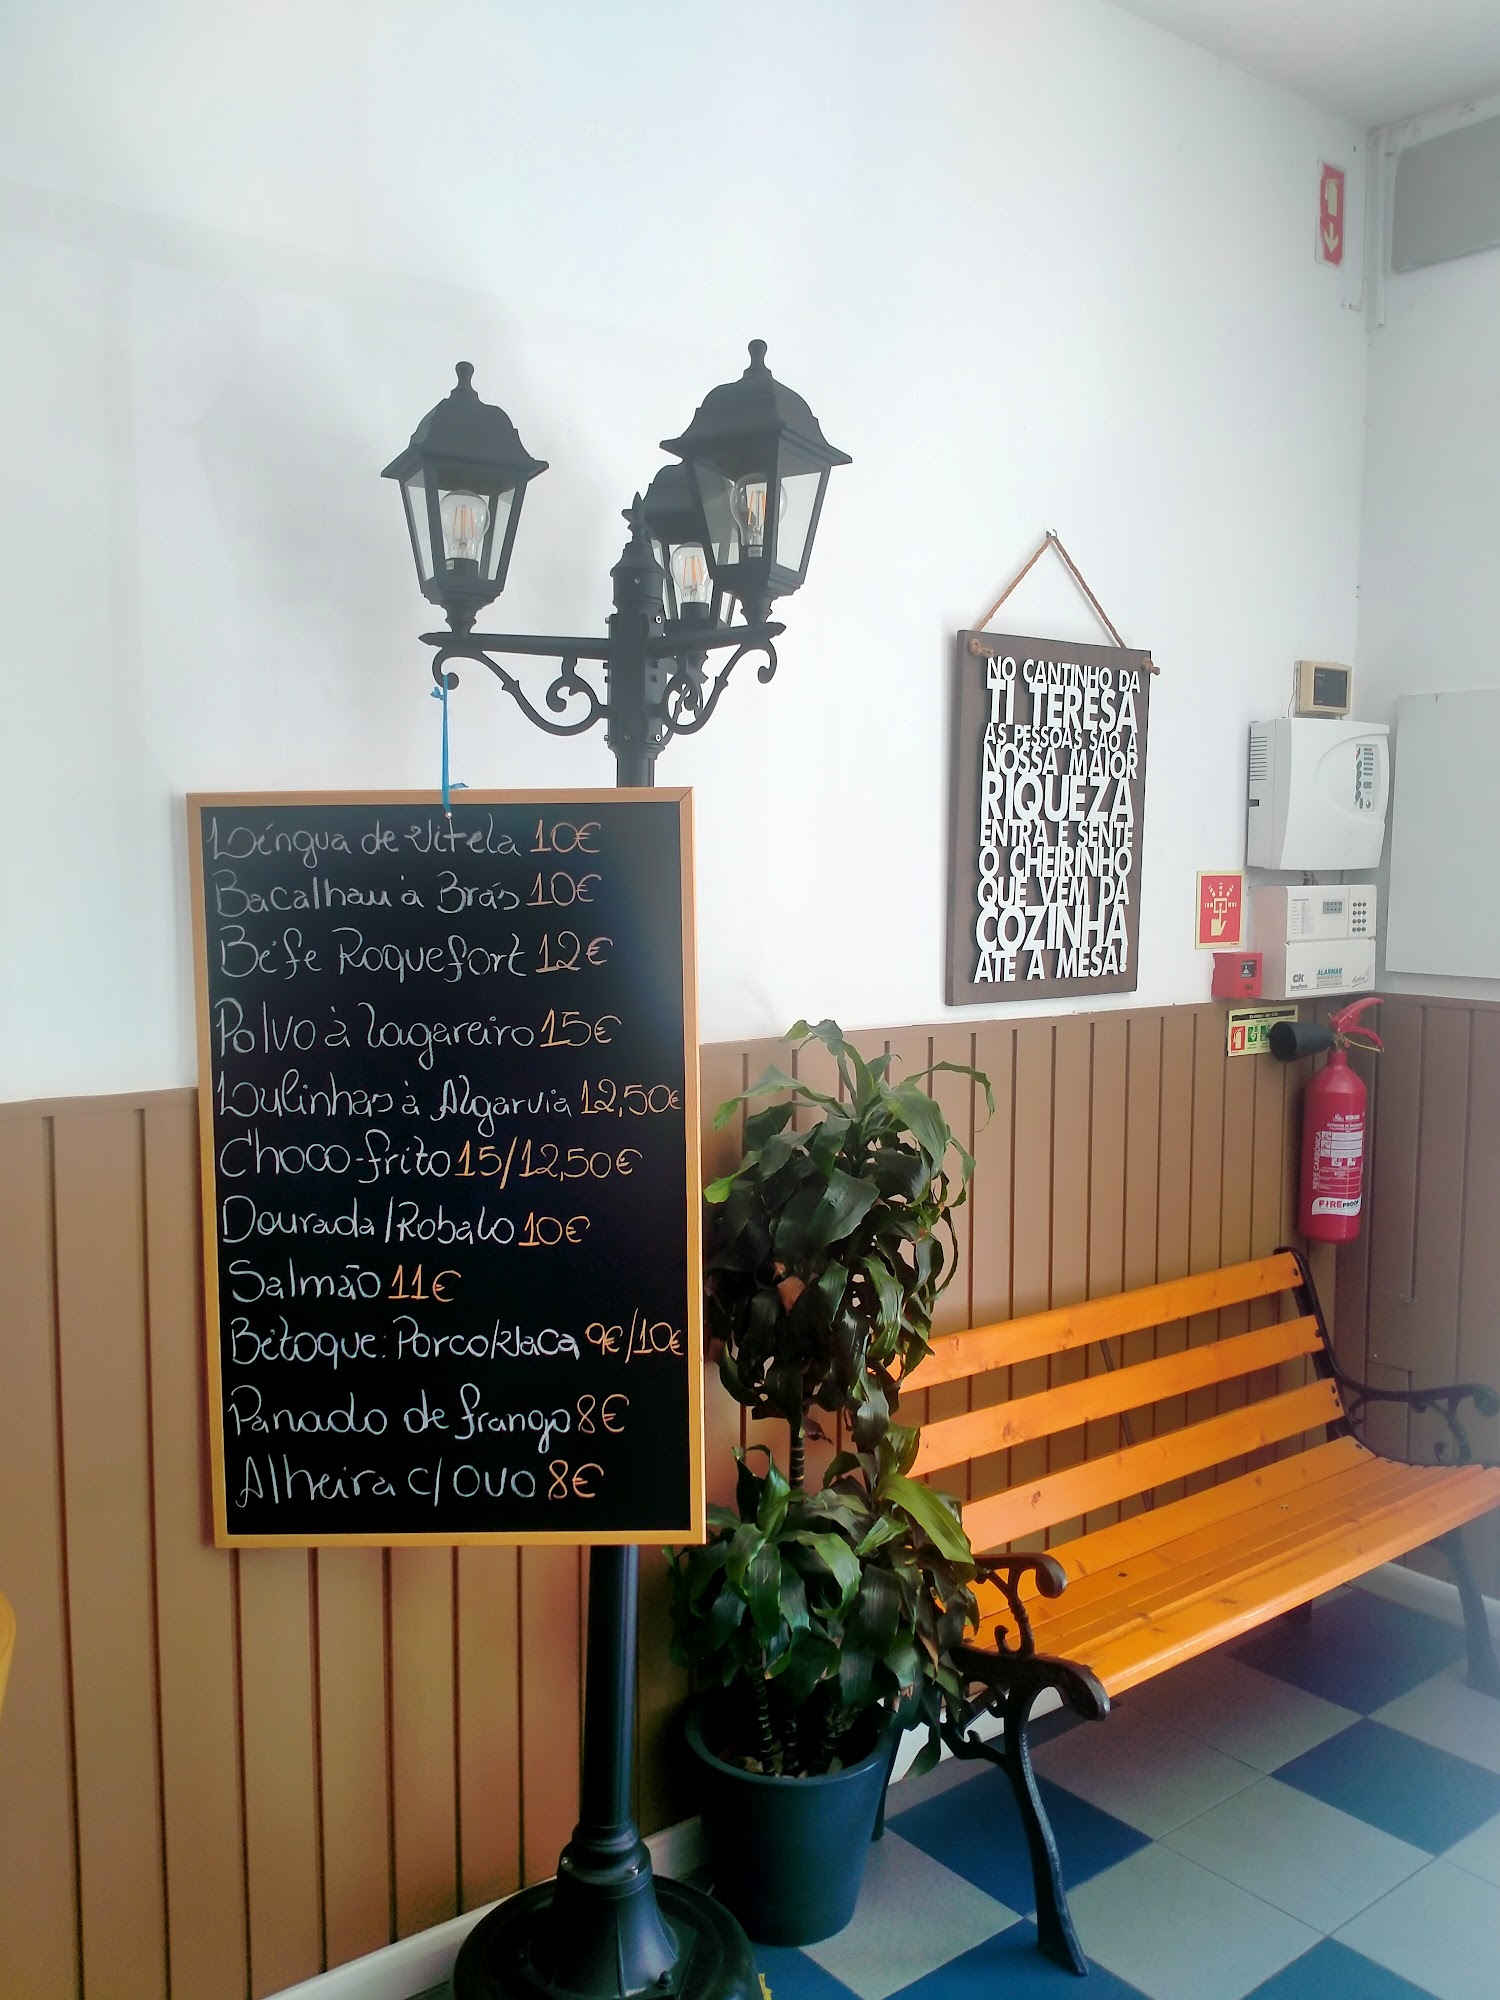 Língua de Vitela 10€
Bacalhau à Brás 10€
Bife Roquefort 12€
Polvo à Lagareiro 15€
Lulinhas à Algarvia 12,50€
Choco frito 15/12,50€
Dourada/Robalo 10€
Salmão 11€
Bitoque: Porco/Vaca 9€/10€
Panado de frango 8€
Alheira c/ovo 8€
NO CANTINHO DA
TI TERESA
AS PESSOAS SÃO A
NOSSA MAIOR
RIQUEZA
ENTRA E SENTE
O CHEIRINHO
QUE VEM DA
COZINHA
ATÉ A MESA!
ALARMAR
NEVE CARBÓNICA
FIREPROOF